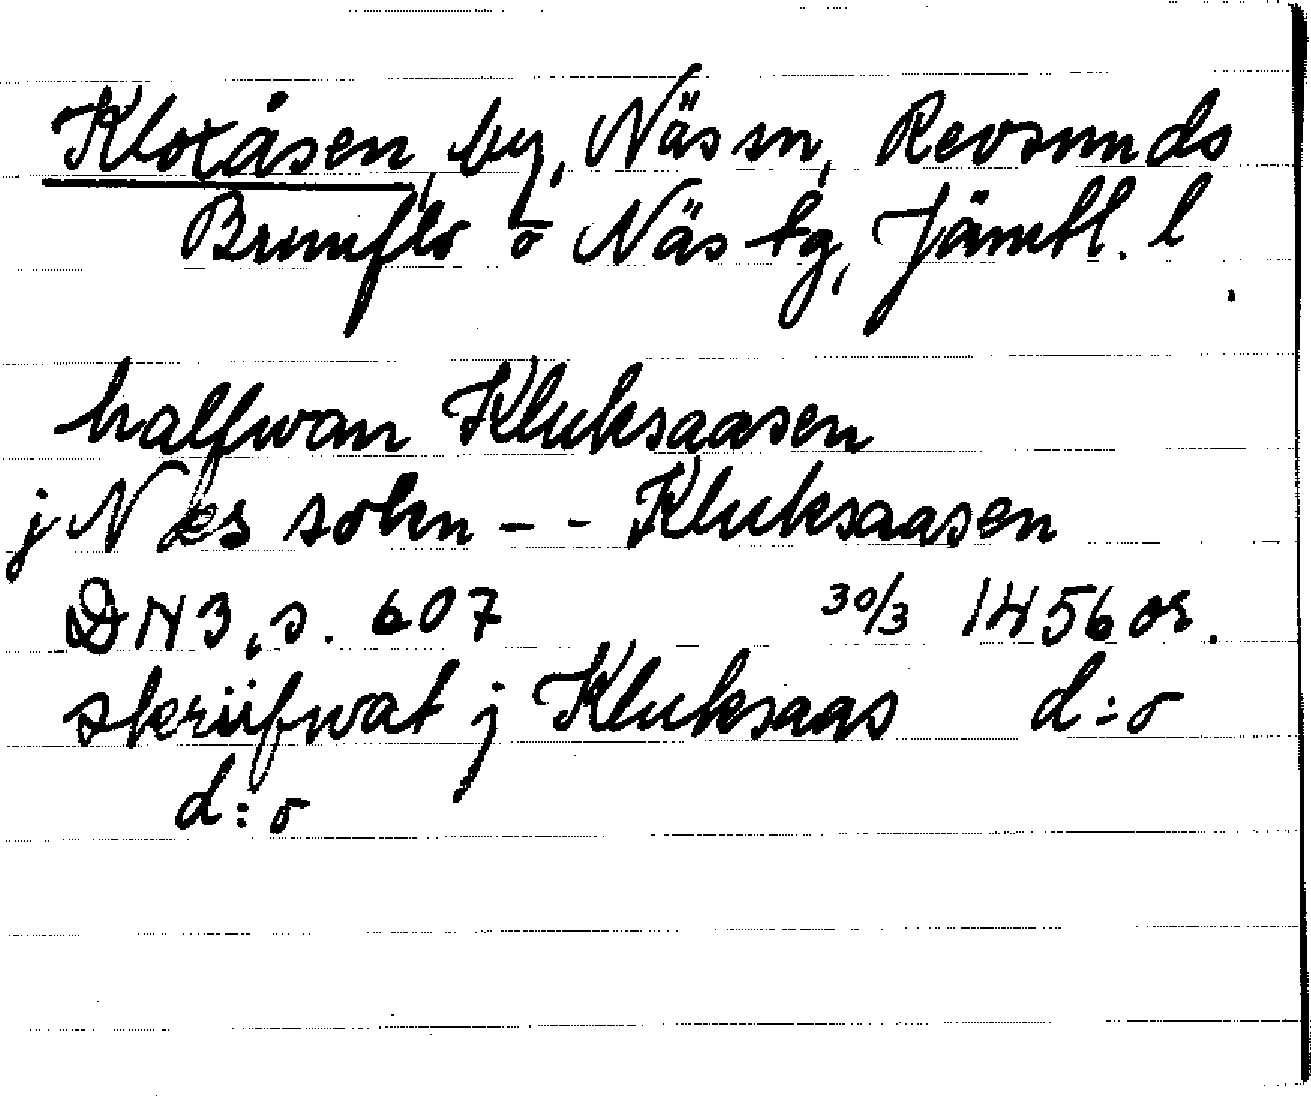 Kloxåsen, by, Näs sn, Revsunds
Brunflo o Näs tg, Jämtl. l.
halfwan Kluksaasen
j Næs sokn - - Kluksaasen
DN 3, s. 607 30/3 1456 or.
skriifwat j Kluksaas d:o
d:o